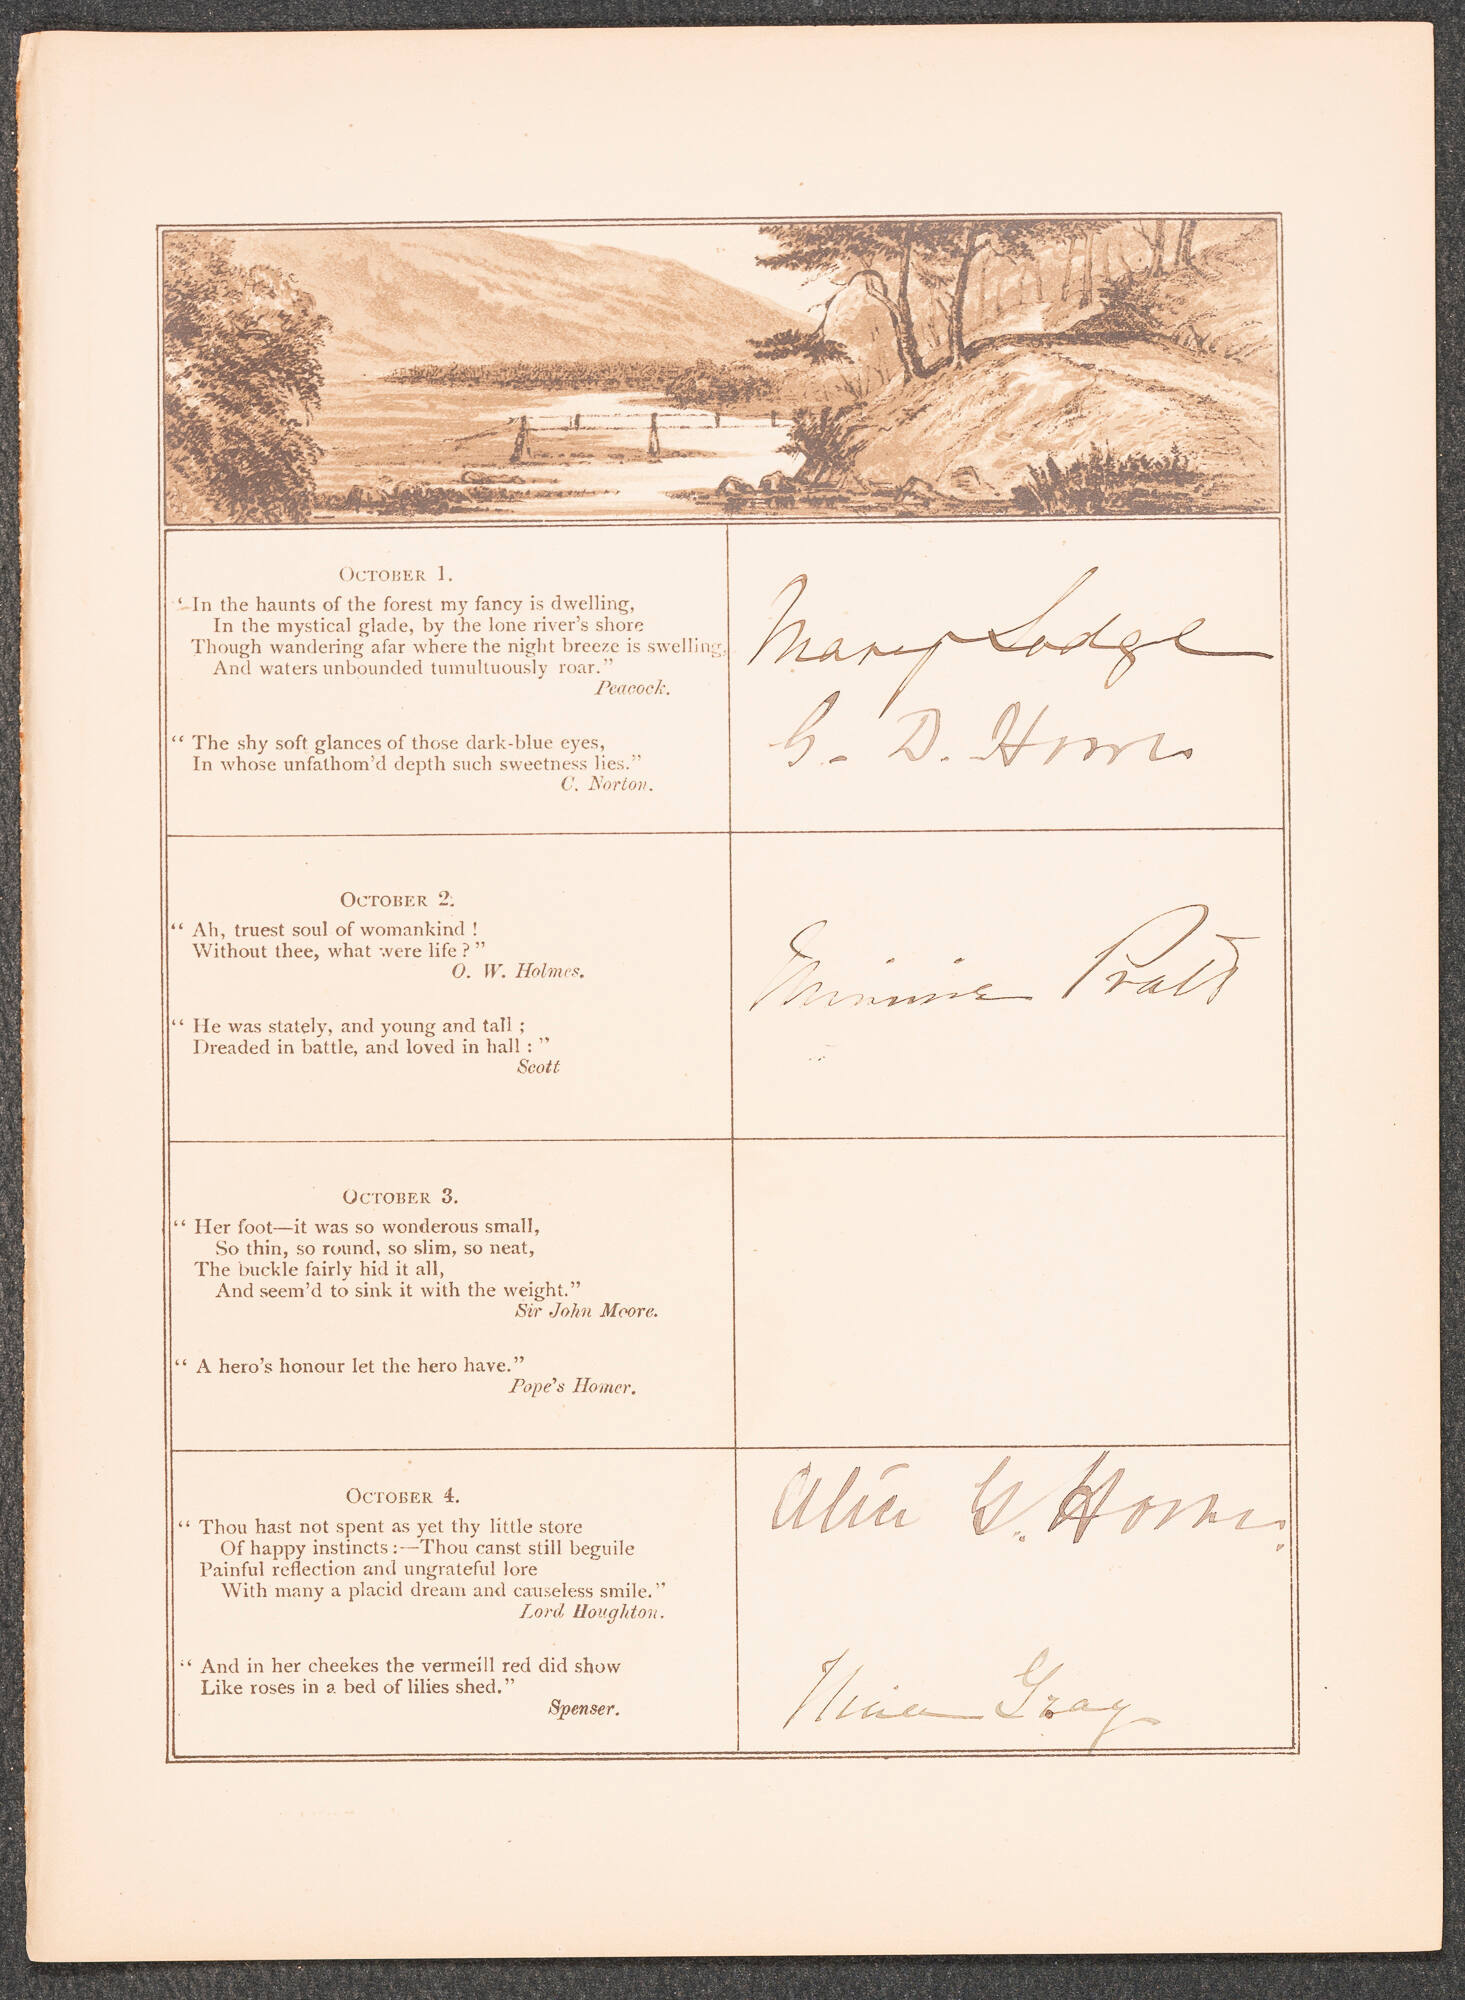 OCTOBER 1.
“ In the haunts of the forest my fancy is dwelling,
In the mystical glade, by the lone river’s shore
Though wandering afar where the night breeze is swelling,
And waters unbounded tumultuously roar.”
Peacock.
“ The shy soft glances of those dark-blue eyes,
In whose unfathom’d depth such sweetness lies.”
C. Norton.
Mary Lodge
G. D. Howe
OCTOBER 2.
“ Ah, truest soul of womankind !
Without thee, what were life ? ”
O. W. Holmes.
“ He was stately, and young and tall ;
Dreaded in battle, and loved in hall : ”
Scott
Minnie Pratt
OCTOBER 3.
“ Her foot—it was so wonderous small,
So thin, so round, so slim, so neat,
The buckle fairly hid it all,
And seem’d to sink it with the weight.”
Sir John Moore.
“ A hero’s honour let the hero have.”
Pope’s Homer.
OCTOBER 4.
“ Thou hast not spent as yet thy little store
Of happy instincts :—Thou canst still beguile
Painful reflection and ungrateful lore
With many a placid dream and causeless smile.”
Lord Houghton.
“ And in her cheekes the vermeill red did show
Like roses in a bed of lilies shed.”
Spenser.
Alice G. Howe.
Nina Gray